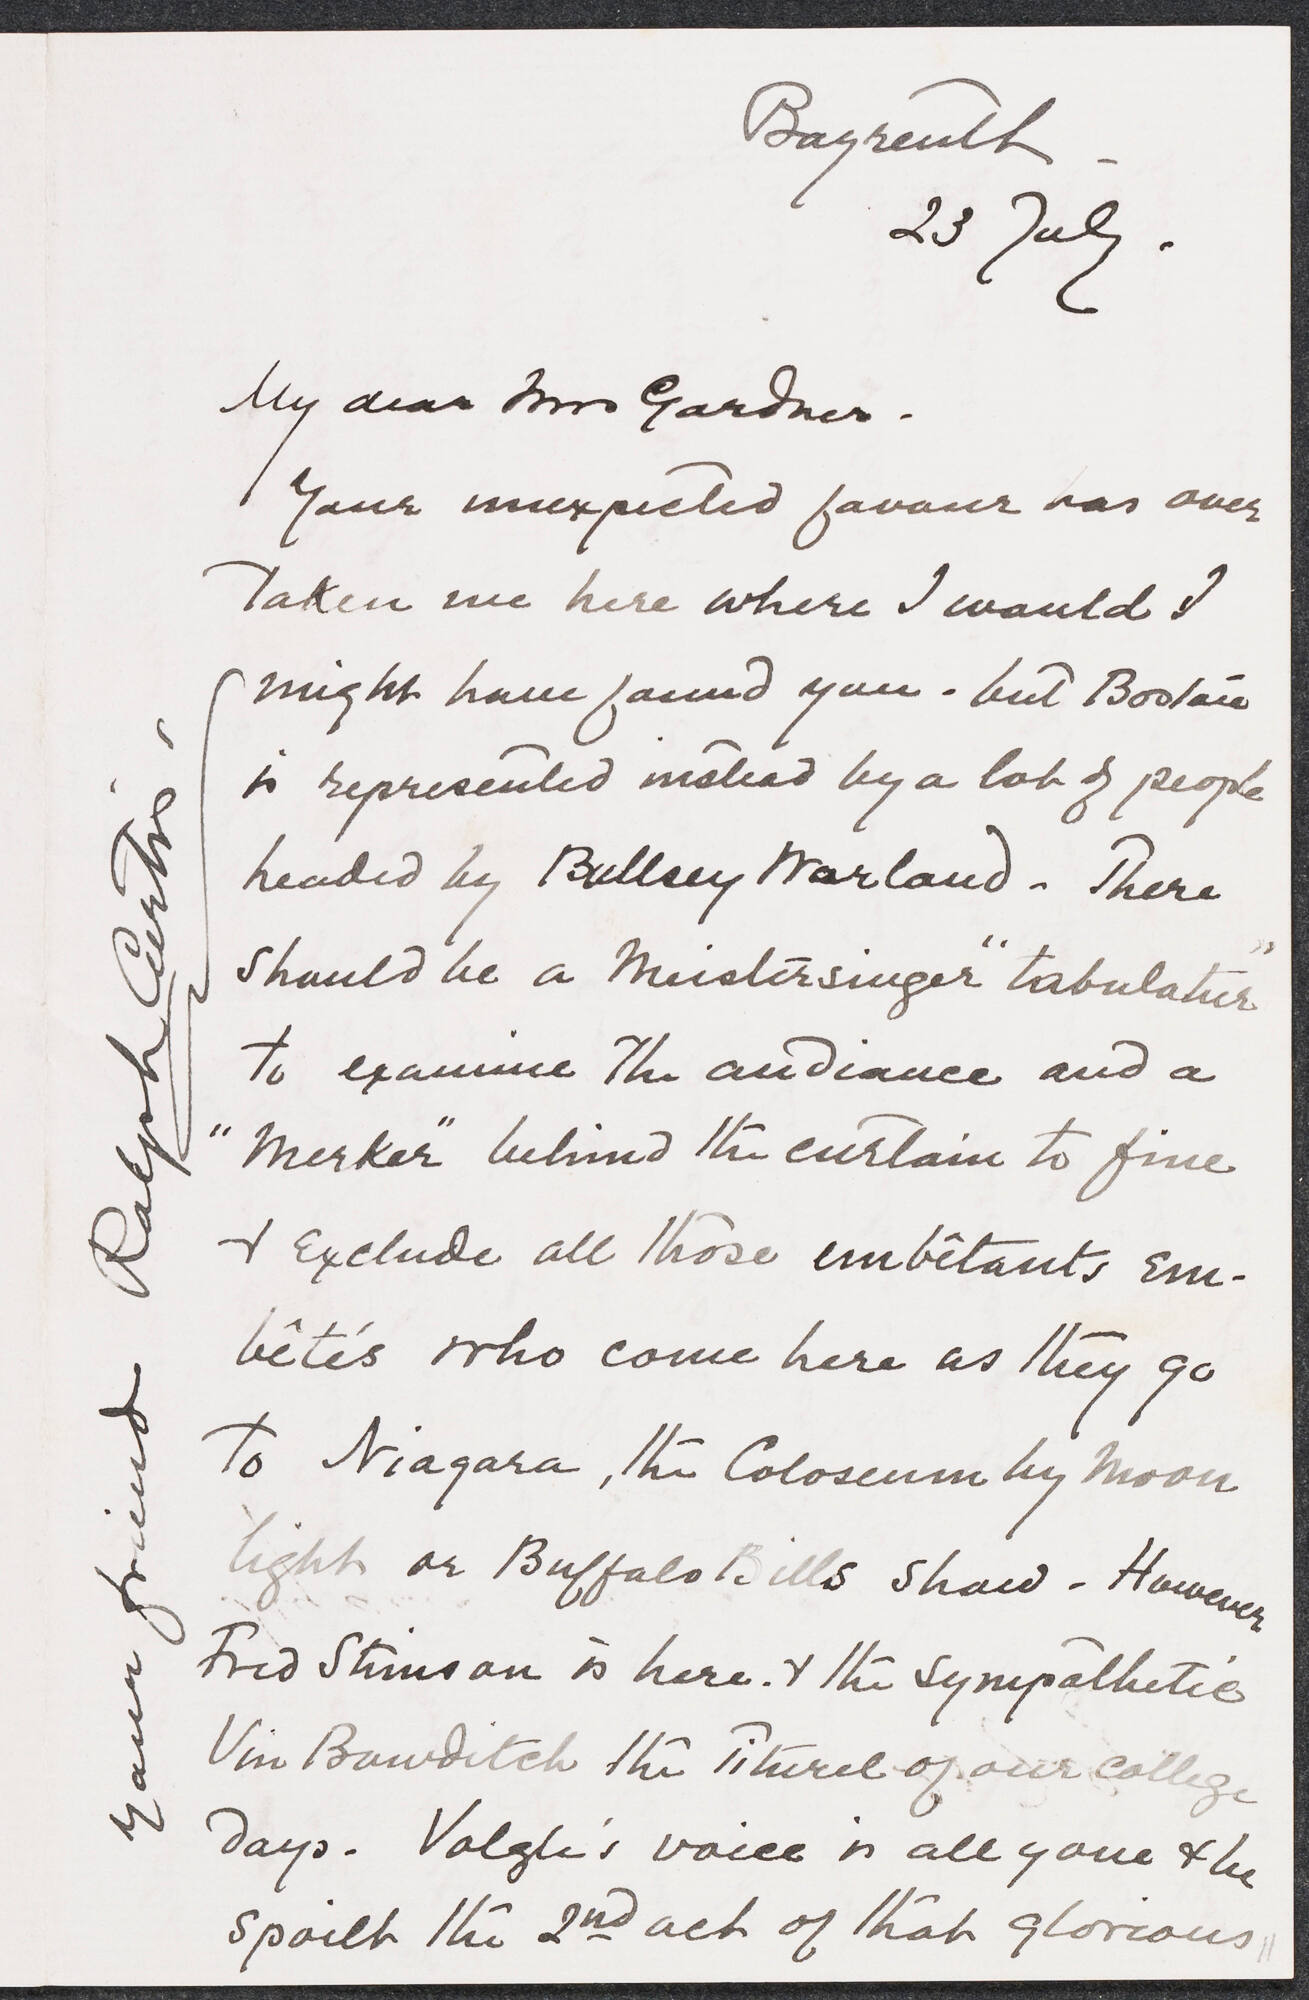 Bayreuth -
23 July.
My dear Mrs Gardner.
Your unexpected favour has over
taken me here where I would I
might have found you - but Boston
is represented instead by a lot of people
headed by Bullsey Warland - There
should be a Meistersinger "tabulatur"
to examine the audiance and a
"Merker" behind the curtain to fine
& exclude all those embêtants em-
bêtés who come here as they go
to Niagara, the Coloseum by moon
light or Buffalo Bills show - However
Fred Stimson is here. & the sympathetic
Vin Bowditch the Titurel of our college
days. Volgh's voice is all gone & he
spoilt the 2nd act of that glorious
Your friend Ralph Curtis.